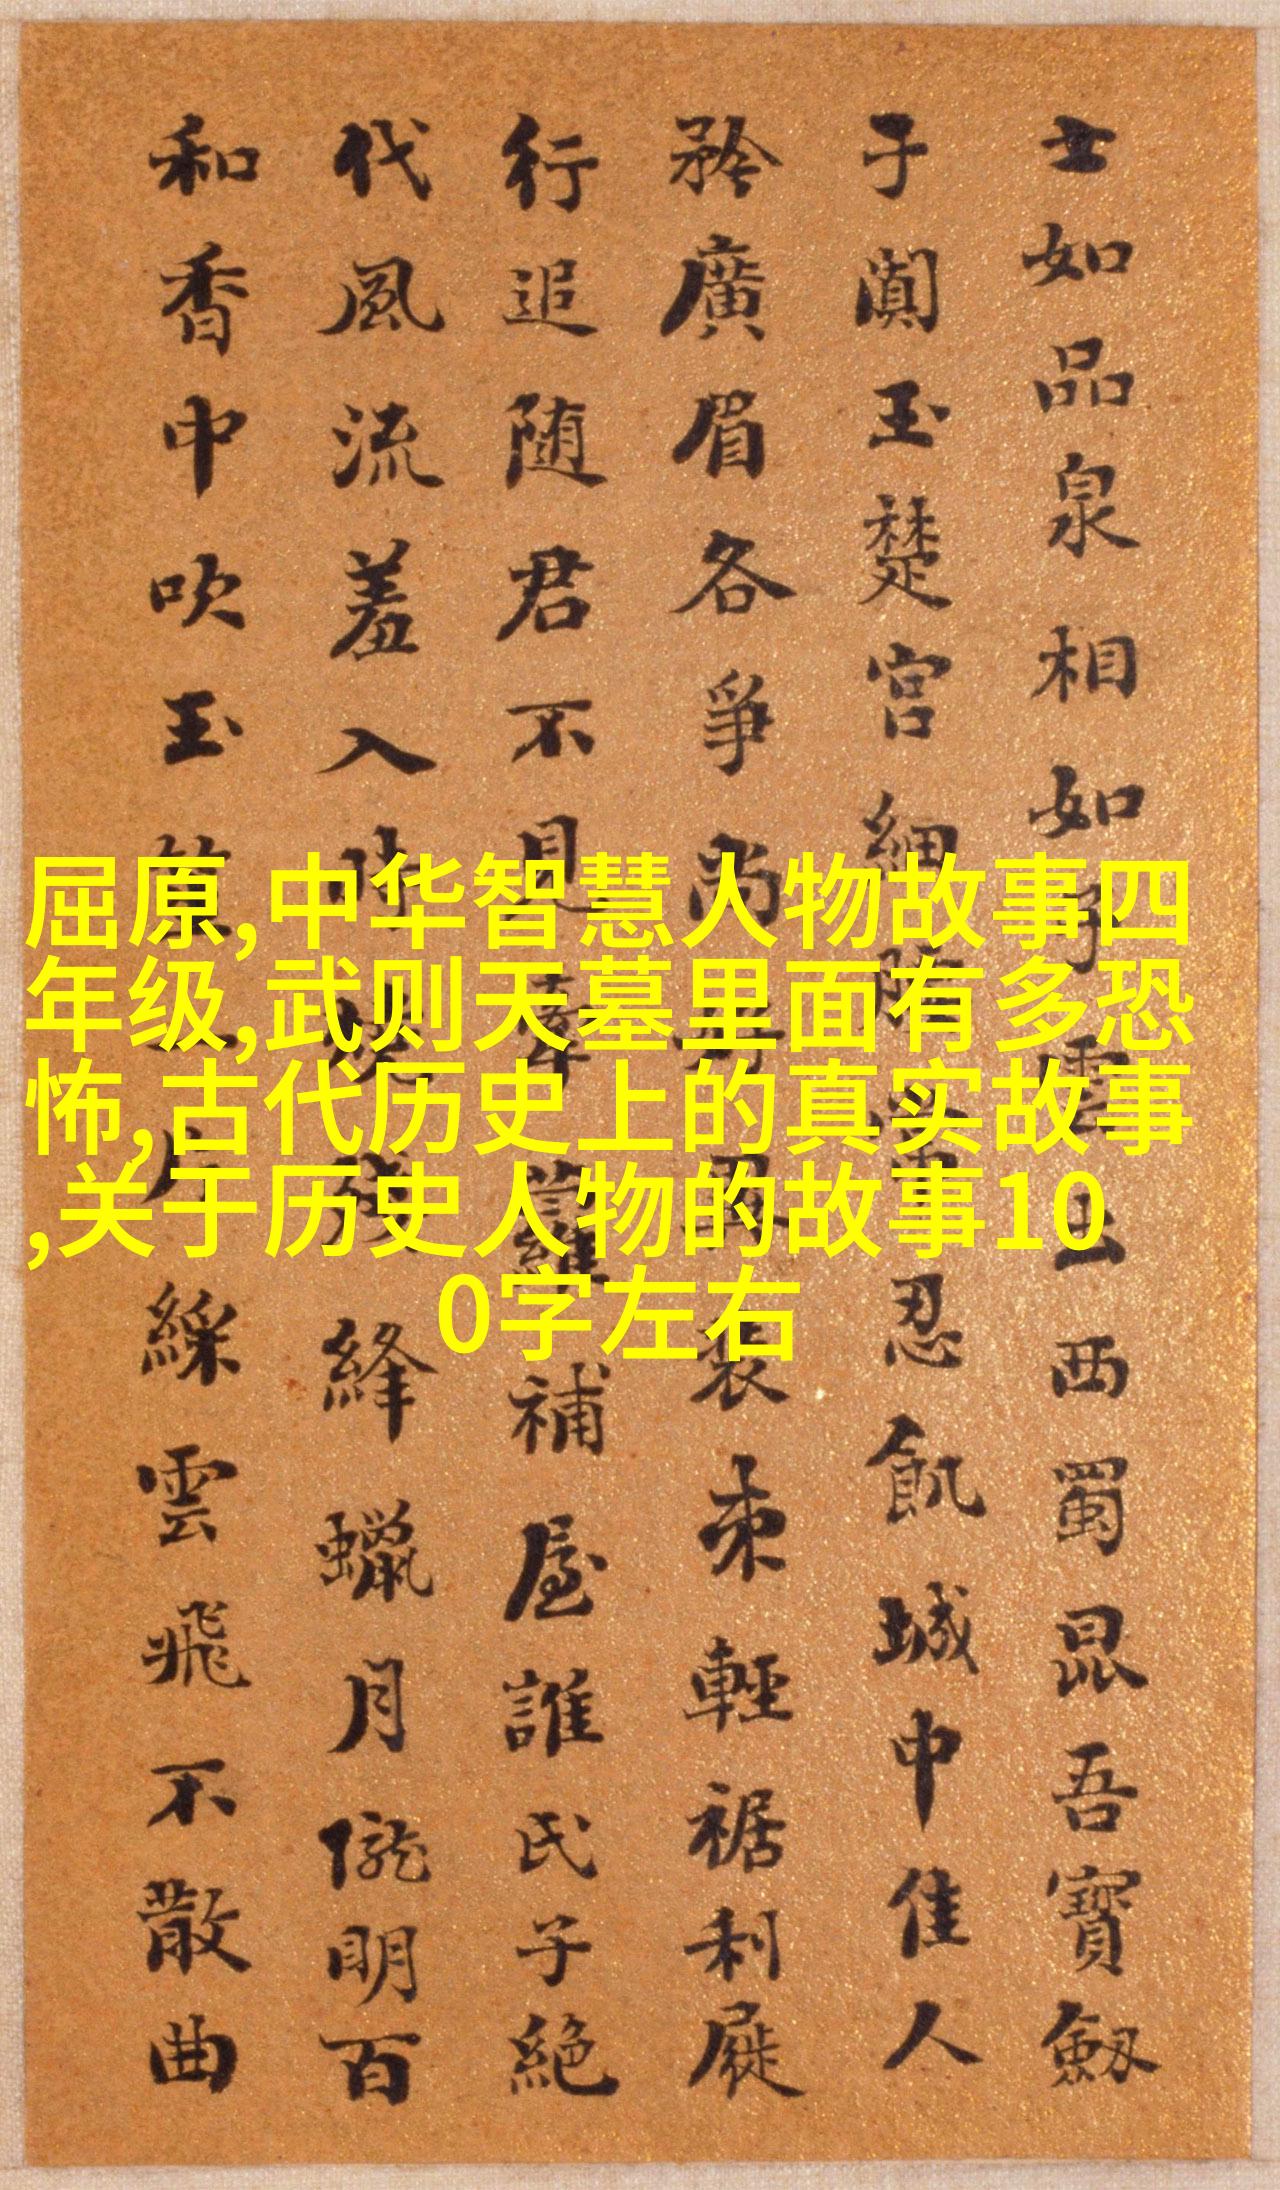 屈原,中华智慧人物故事四
年级,武则天墓里面有多恐
怖,古代历史上的真实故事
,关于历史人物的故事10
0字左右
士如品泉相如如西蜀昆吾寶劔
子闐玉楚宮細忍飢城中佳人
矜廣眉各爭尚好異裝束輕裾利屣
行追随君不見牽蘿補屋誰氏子絕
代風流羞入時絳蠟月隴明百
和香中吹玉笛一片綵雲飛不散曲